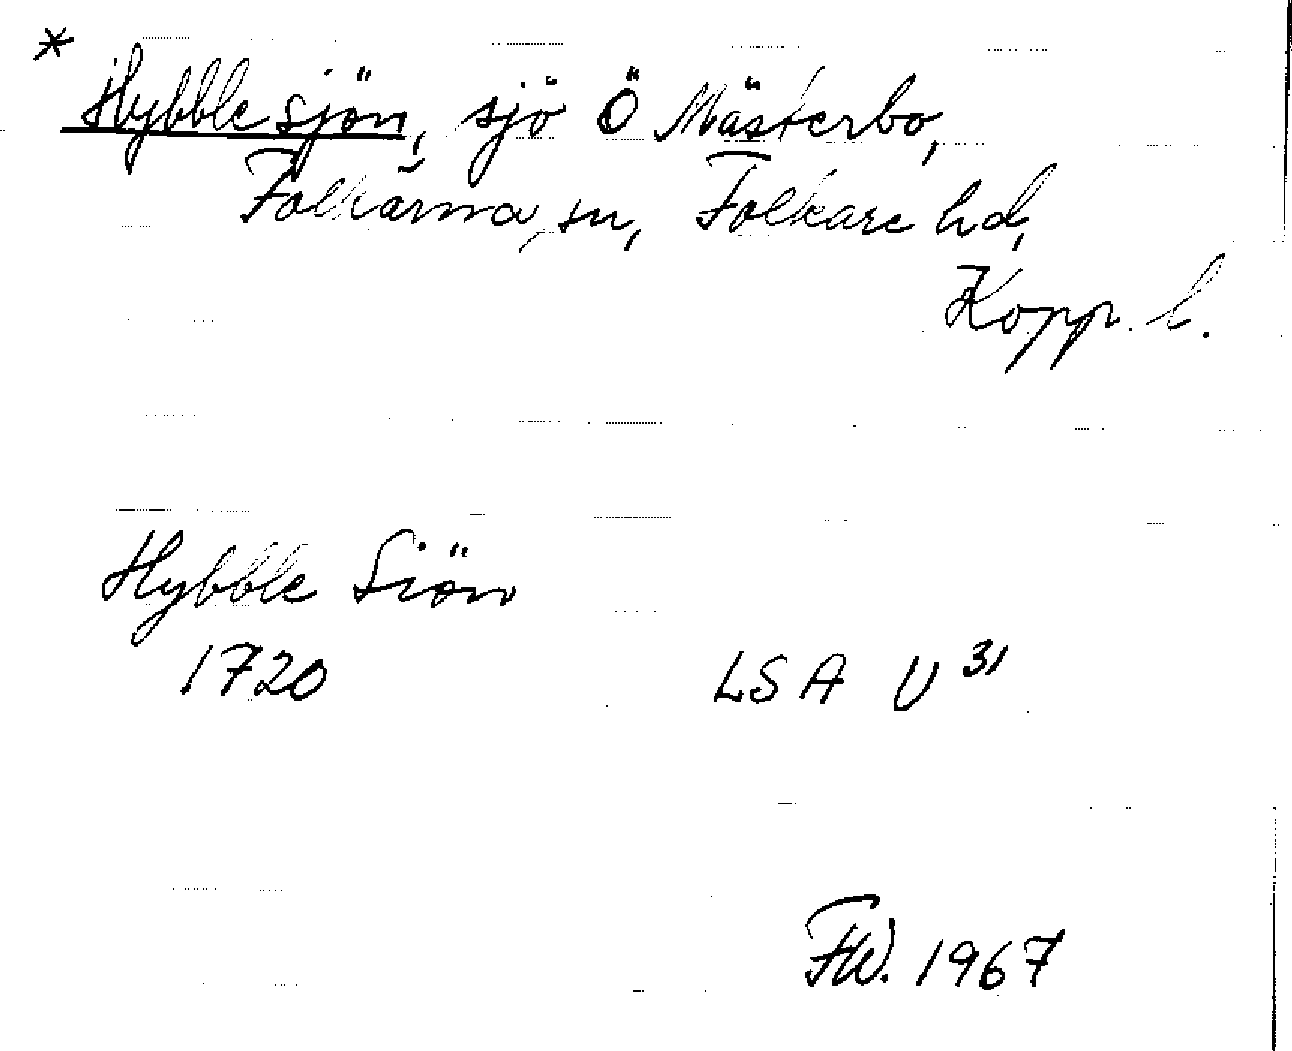 * Hybblesjön, sjö Ö Mästerbo,
Folkärna sn, Folkare hd,
Kopp. l.
Hybble Siön
1720 LSA U 31
FW. 1967